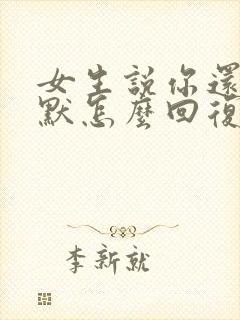 女生説你還
默怎麽回復
李新就